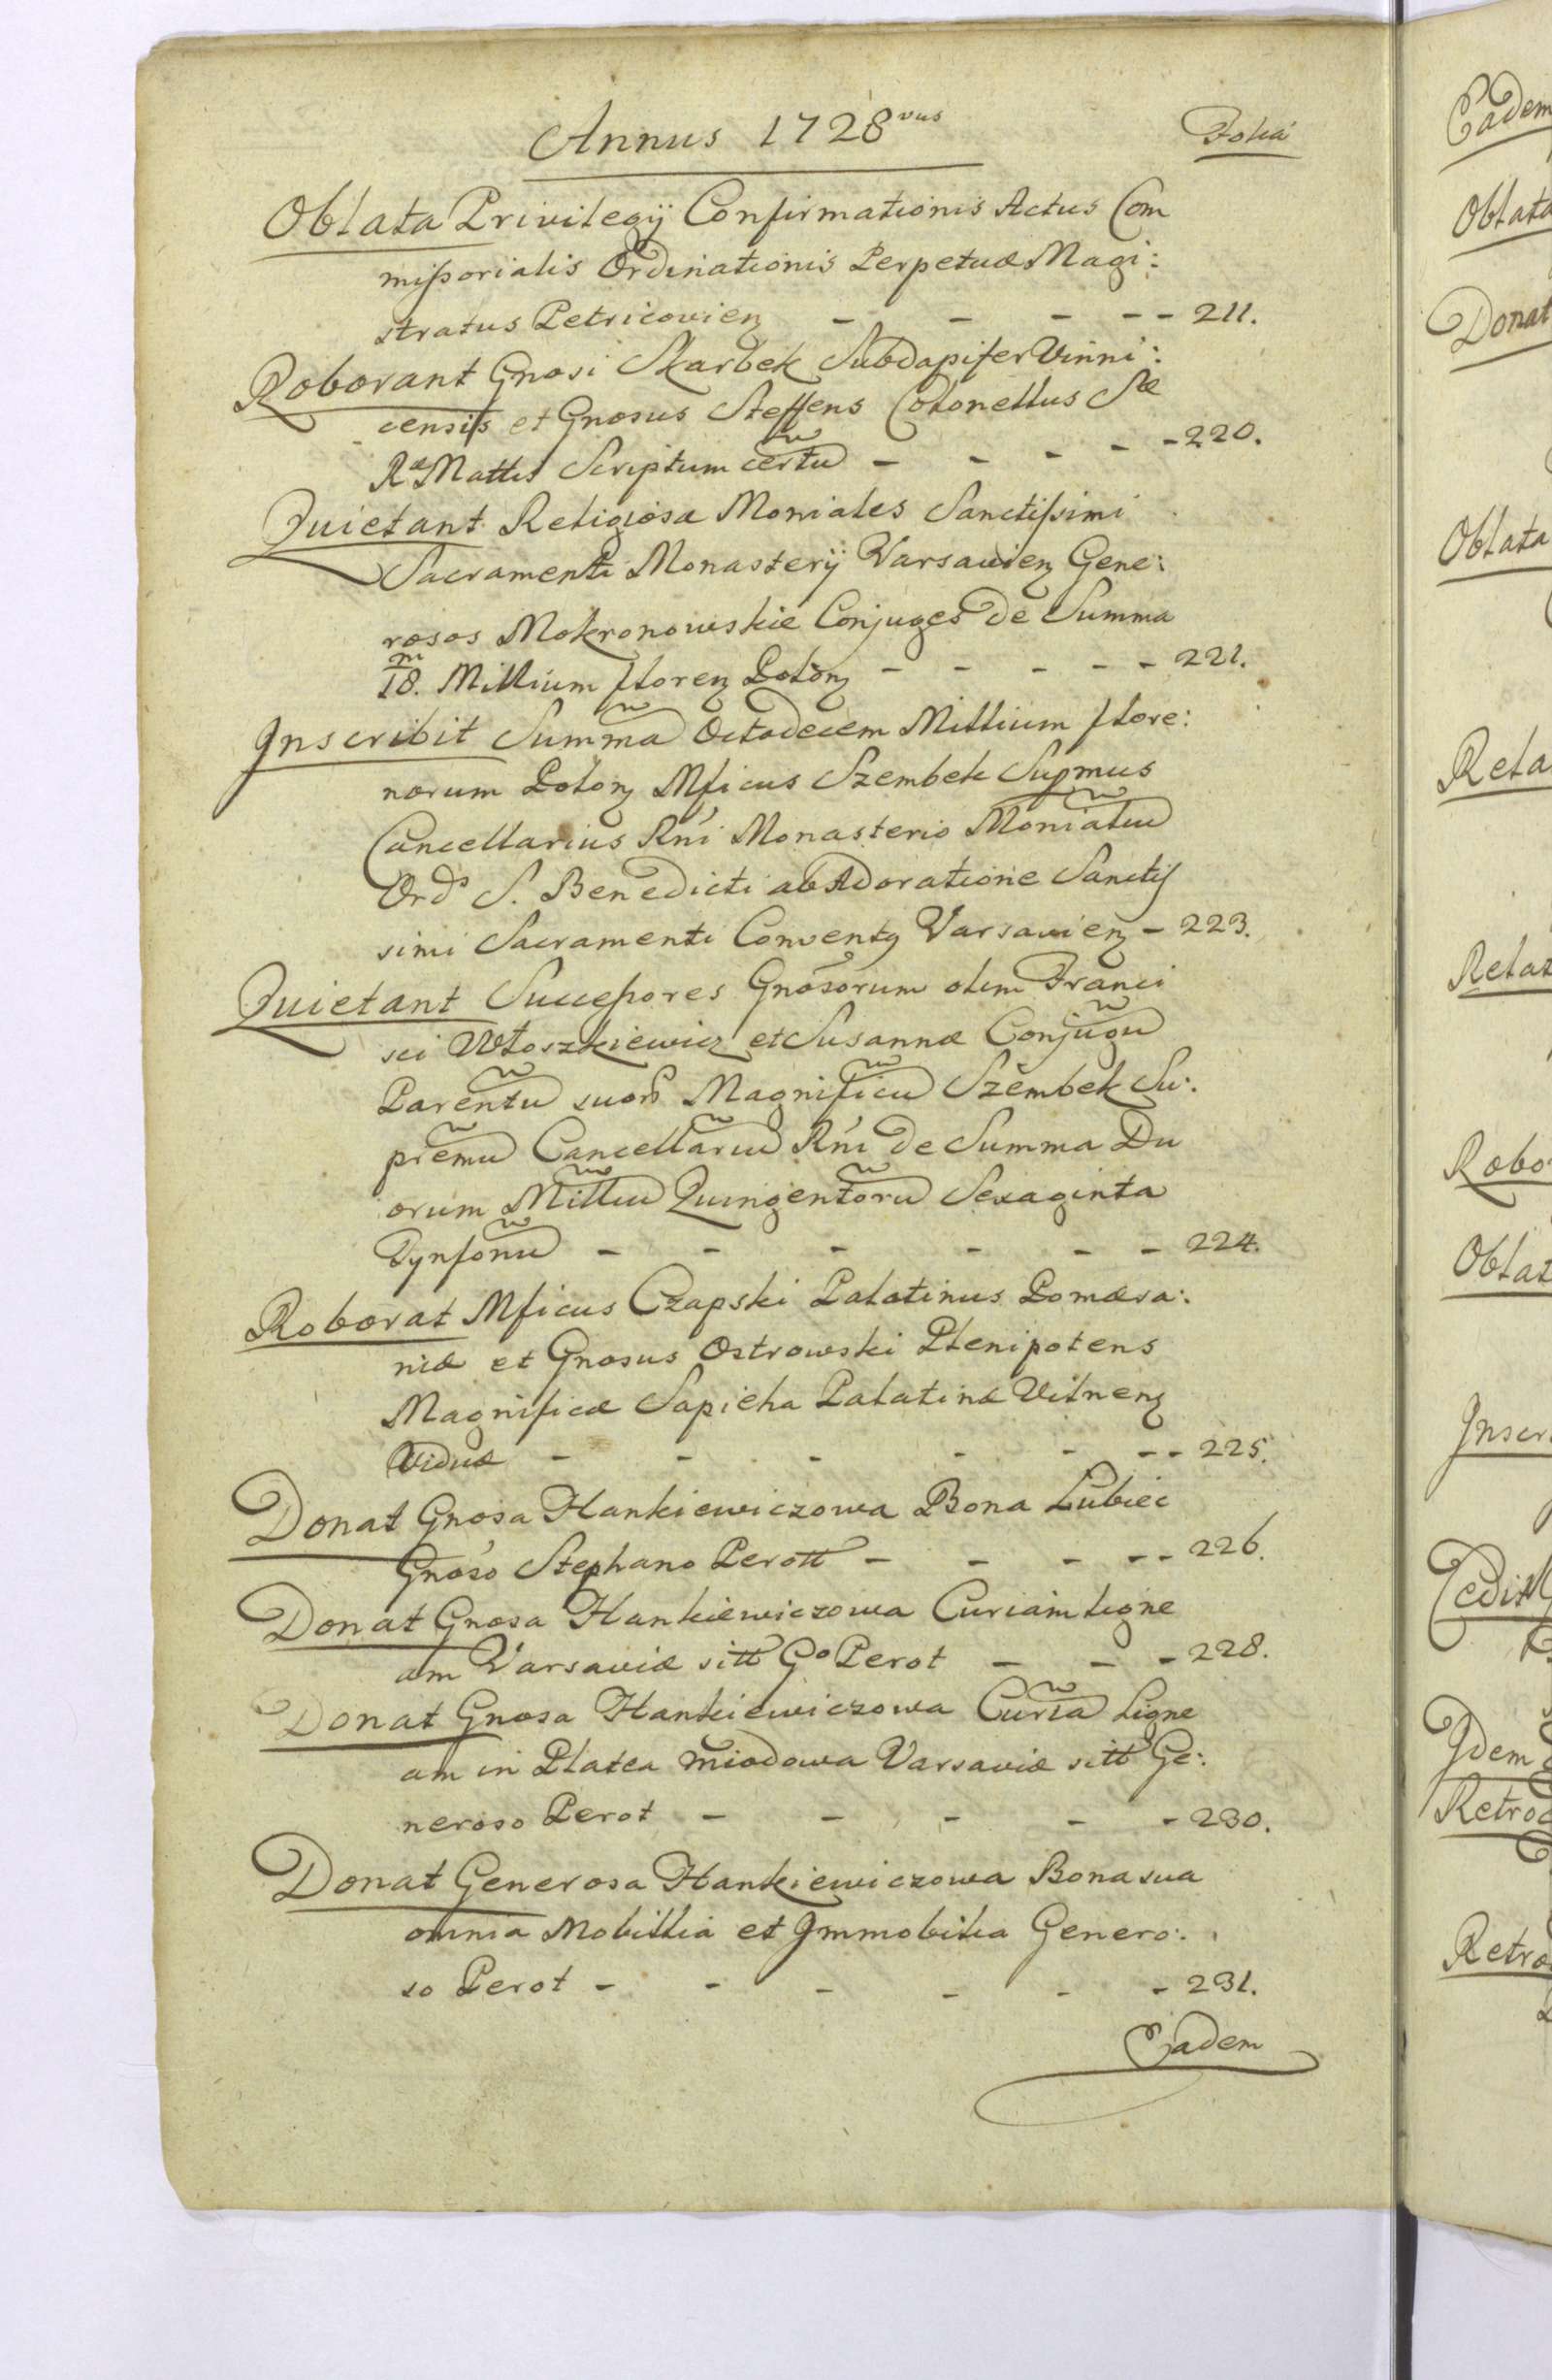 Annus 1728vus
Folia
Oblata Privilegij Confirmationis Actus Com
missorialis Ordinationis Perpetuæ Magi:
stratus Petricovieņ - - - - - 211.
Roborant Gnosi Skarbek Subdapifer Vinni:
censis et Gnosus Steffens Colonellus Sæ
Ræ Mattis Scriptum certũ - - - - 220.
Quietant Religiosa Moniales Sanctissimi
Sacramenti Monasterij Varsavieņ Gene:
rosos Mokronowskie Conjuges de Summa
m
18. Millium floreņ Poloņ - - - - - 221.
Inscribit Summã Octodecem Millium flore:
norum Poloņ Mficus Szembek Supmus
Cancellarius Rni Monasterio Monialiũ
Ords S. Benedicti ab Adoratione Sanctis
simi Sacramenti Conventg Varsavieņ - 223.
Quietant Successores Gnosorum olim Franci
sci Włoszkiewicz et Susannæ Conjugũ
Parentũ suor Magnificũ Szembek Su:
premũ Cancellariũ Rni de Summa Du
orum Milliũ Quingentorũ Sexaginta
Tynfonũ - - - - - - 224.
Roborat Mficus Czapski Palatinus Pomera:
niæ et Gnosus Ostrowski Plenipotens
Magnificæ Sapieha Palatinæ Vilneņ
Viduæ - - - - - - - 225.
Donat Gnosa Hankiewiczowa Bona Lubiec
Gnoso Stephano Perott - - - - - 226.
Donat Gnosa Hankiewiczowa Curiam ligne
am Varsaviæ sitt Go Perot - - - 228.
Donat Gnosa Hankiewiczowa Curiã Ligne
am in Platea Miodowa Varsaviæ sitt Ge:
neroso Perot - - - - - 230.
Donat Generosa Hankiewiczowa Bona sua
omnia Mobillia et Immobilia Genero:
so Perot - - - - - - 231.
Eadem
Eadem
Oblata
Donat
Oblata
Rela
Relat
Robo
Oblat
Inscr
Cedit
Idem
Retroc
Retro